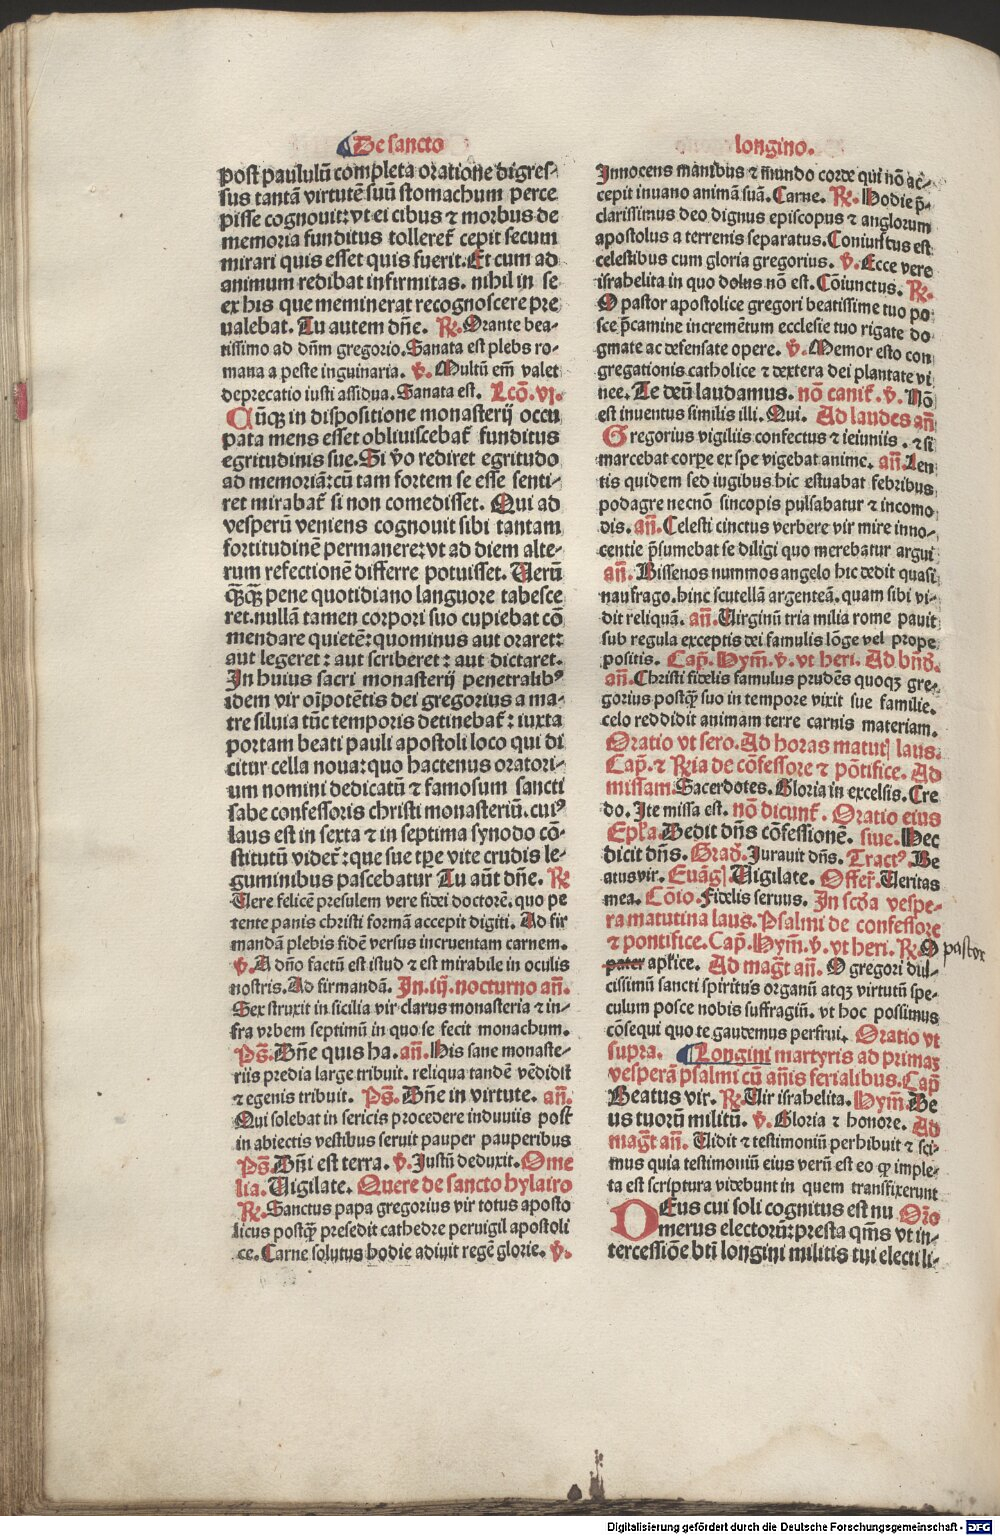 De sancto
longino.
post paululū completa oratione digres-
sus tantā virtutē suū stomachum perce
pisse cognouit: vt ei cibus ⁊ morbus de
memoria funditus tolleret̄ cepit secum
mirari quis esset quis fuerit. Et cum ad
animum redibat infirmitas. nihil in se
ex his que meminerat recognoscere pre
ualebat. Tu autem dn̄e. R. Orante bea-
tissimo ad dn̄m gregorio. Sanata est plebs ro-
mana a peste inguinaria. v̄. Multū em̄ valet
deprecatio iusti assidua. Sanata est. Lcō. vj.
Cūqꝫ in dispositione monasterij occu
pata mens esset obliuiscebat̄ funditus
egritudinis sue. Si v̄o rediret egritudo
ad memoriā: cū tam fortem se esse senti-
ret mirabat̄ si non comedisset. Qui ad
vesperū veniens cognouit sibi tantam
fortitudinē permanere: vt ad diem alte-
rum refectionē differre potuisset. Uerū
q̄ꝫq̄ꝫ pene quotidiano languore tabesce
ret. nullā tamen corpori suo cupiebat cō
mendare quietē: quominus aut oraret:
aut legeret: aut scriberet: aut dictaret.
In huius sacri monasterij penetralibꝰ
idem vir oīpotētis dei gregorius a ma-
tre siluia tūc temporis detinebat̄: iuxta
portam beati pauli apostoli loco qui di
citur cella noua: quo hactenus oratori-
um nomini dedicatū ⁊ famosum sancti
sabe confessoris christi monasteriū. cuiꝰ
laus est in sexta ⁊ in septima synodo cō-
stitutū videt̄: que sue tp̄e vite crudis le-
guminibus pascebatur Tu aūt dn̄e. R
Uere felicē presulem vere fidei doctorē. quo pe
tente panis christi formā accepit digiti. Ad fir
mandā plebis fidē versus incruentam carnem.
v̄. A dn̄o factū est istud ⁊ est mirabile in oculis
nostris. Ad firmandā. In. iij. nocturno an̄.
Sex struxit in sicilia vir clarus monasteria ⁊ in-
fra vrbem septimū in quo se fecit monachum.
Ps̄. Dn̄e quis ha. an̄. His sane monaste-
riis predia large tribuit. reliqua tandē vēdidit
⁊ egenis tribuit. Ps̄. Dn̄e in virtute. an̄.
Qui solebat in sericis procedere induuiis post
in abiectis vestibus seruit pauper pauperibus
Ps̄. Dn̄i est terra. v̄. Justū deduxit. Ome
lia. Uigilate. Quere de sancto hylairo
R. Sanctus papa gregorius vir totus aposto
licus postq̄ꝫ presedit cathedre peruigil apostoli
ce. Carne solutus hodie adiuit regē glorie. v̄.
Innocens manibus ⁊ mundo corde qui nō ac-
cepit inuano animā suā. Carne. R. Hodie p̄-
clarissimus deo dignus episcopus ⁊ anglorum
apostolus a terrenis separatus. Coniunctus est
celestibus cum gloria gregorius. v̄. Ecce vere
israhelita in quo dolus nō est. Cōiunctus. R.
O pastor apostolice gregori beatissime tuo po
sce p̄camine incremētum ecclesie tuo rigate do
gmate ac defensate opere. v̄. Memor esto con
gregationis catholice ⁊ dextera dei plantate vi
nee. Te deū laudamus. nō canit̄. v̄. Nō
est inuentus similis illi. Qui. Ad laudes an̄
Gregorius vigiliis confectus ⁊ ieiuniis. ⁊ si
marcebat corpe ex spe vigebat anime. an̄. Len
tis quidem sed iugibus hic estuabat febribus
podagre necnō sincopis pulsabatur ⁊ incomo
dis. an̄. Celesti cinctus verbere vir mire inno-
centie p̄sumebat se diligi quo merebatur argui
an̄. Bissenos nummos angelo hic dedit quasi
naufrago. hinc scutellā argenteā. quam sibi vi-
dit reliquā. an̄. Uirginū tria milia rome pauit
sub regula exceptis dei famulis lōge vel prope
positis. Cap̄. Hym̄. v̄. vt heri. Ad bn̄d̄.
an̄. Christi fidelis famulus prudēs quoqꝫ gre-
gorius postq̄ꝫ suo in tempore vixit sue familie.
celo reddidit animam terre carnis materiam.
Oratio vt sero. Ad horas matut̄ laus.
Cap̄. ⁊ Ria de cōfessore ⁊ pōtifice. Ad
missam. Sacerdotes. Gloria in excelsis. Cre
do. Ite missa est. nō dicunt̄. Oratio eius
Ep̄la. Dedit dn̄s cōfessionē. siue. Hec
dicit dn̄s. Grad̄. Jurauit dn̄s. Tractꝰ. Be
atus vir. Euāḡ. Uigilate. Offer̄. Ueritas
mea. Cōio. Fidelis seruus. In scd̄a vespe-
ra matutina laus. Psalmi de confessore
⁊ pontifice. Cap̄. Hym̄. v̄. vt heri. R. O pastor
pater ap̄lice. Ad maḡt an̄. O gregori dul-
cissimū sancti spiritus organū atqꝫ virtutū spe-
culum posce nobis suffragiū. vt hoc possimus
cōsequi quo te gaudemus perfrui. Oratio vt
supra. Longini martyris ad primaꝫ
vesperā psalmi cū an̄is ferialibus. Cap̄
Beatus vir. R. Uir israhelita. Hym̄. De
us tuorū militū. v̄. Gloria ⁊ honore. Ad
maḡt an̄. Uidit ⁊ testimoniū perhibuit ⁊ sci-
mus quia testimoniū eius verū est eo ꝙ imple-
ta est scriptura videbunt in quem transfixerunt
DEus cui soli cognitus est nu Or̄o
merus electorū: presta qm̄s vt in-
tercessiōe bt̄i longini militis tui electi li-
Digitalisierung gefördert durch die Deutsche Forschungsgemeinschaft - DFG